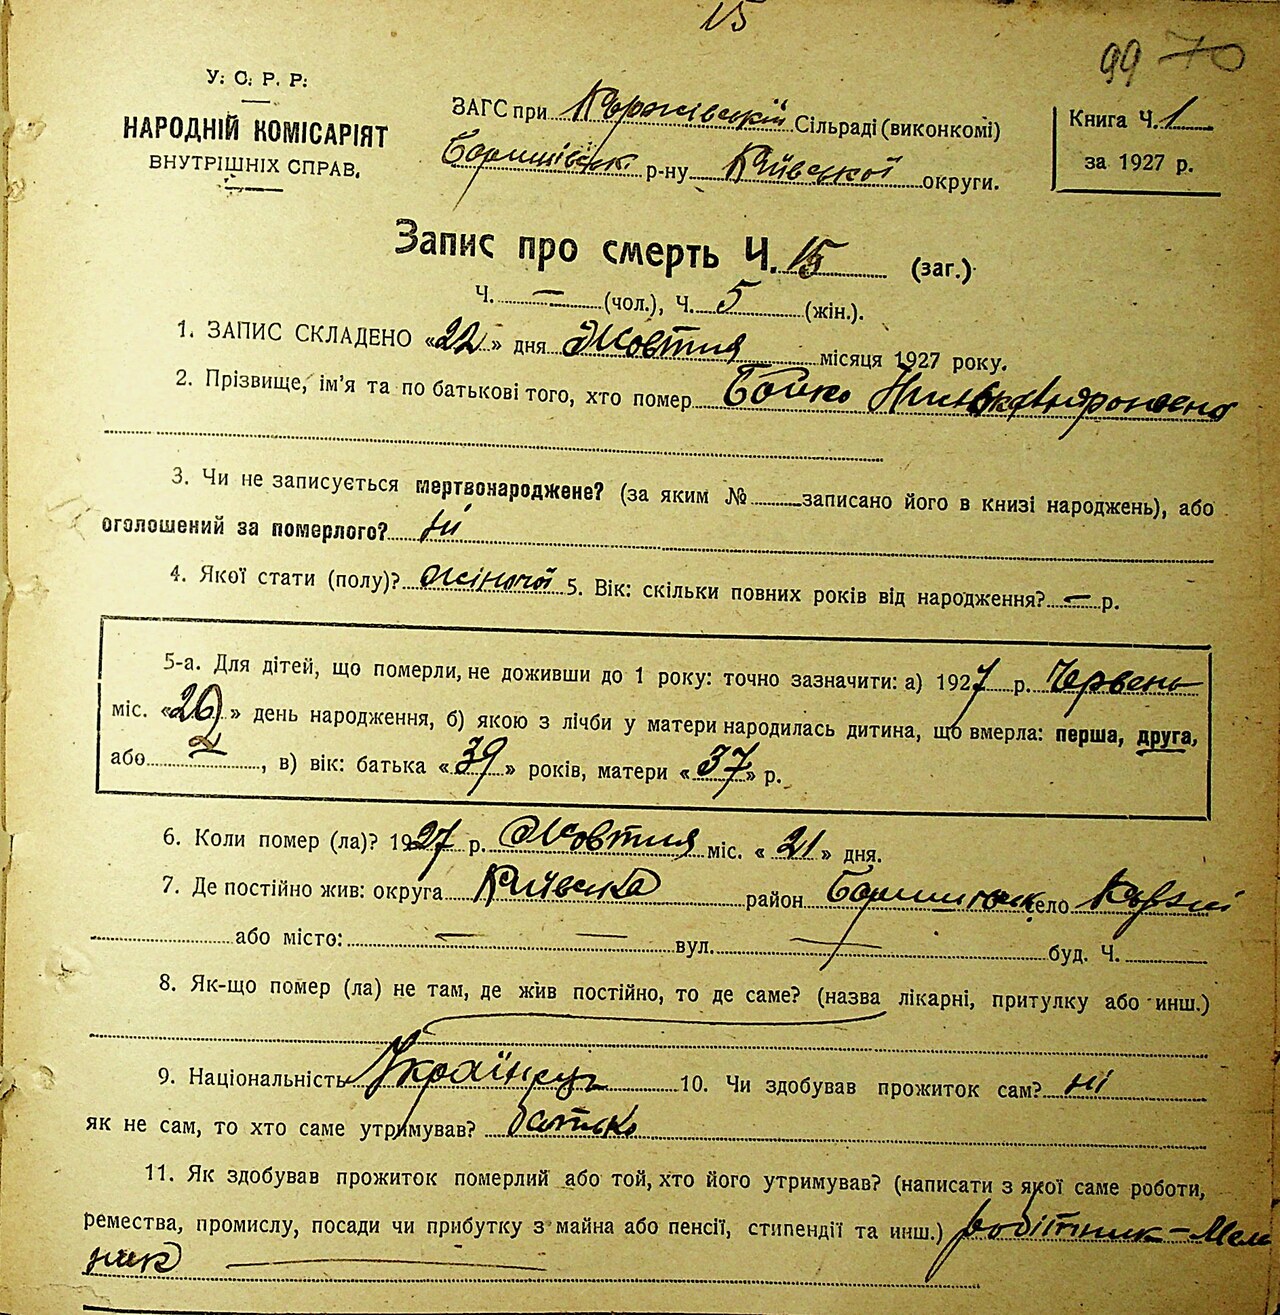 15
99 70
У. С. Р. Р.
НАРОДНІЙ КОМІСАРІЯТ
ВНУТРІШНІХ СПРАВ.
ЗАГС при Коржівській Сільраді (виконкомі)
Боришівськ р-ну Київської округи.
Книга Ч. 1
за 1927 р.
Запис про смерть Ч. 15 (заг.)
Ч. — (чол.), Ч. 5 (жін.).
1. ЗАПИС СКЛАДЕНО «22» дня Жовтня місяця 1927 року.
2. Прізвище, ім'я та по батькові того, хто помер Бойко
3. Чи не записується мертвонароджене? (за яким № записано його в книзі народжень), або
оголошений за померлого? ні
4. Якої стати (полу)? жіночої 5. Вік: скільки повних років від народження? — р.
5-а. Для дітей, що померли, не доживши до 1 року: точно зазначити: а) 1927 р. Червень
міс. «26» день народження, б) якою з лічби у матери народилась дитина, що вмерла: перша, друга,
або 2, в) вік: батька «39» років, матери «37» р.
6. Коли помер (ла)? 1927 р. Жовтня міс. «21» дня.
7. Де постійно жив: округа Київська район село Коржі
або місто: — — вул. — буд. Ч.
8. Як-що помер (ла) не там, де жив постійно, то де саме? (назва лікарні, притулку або инш.)
9. Національність 10. Чи здобував прожиток сам? ні
як не сам, то хто саме утримував? батько
11. Як здобував прожиток померлий або той, хто його утримував? (написати з якої саме роботи,
ремества, промислу, посади чи прибутку з майна або пенсії, стипендії та инш.) робітник - Мель
ник